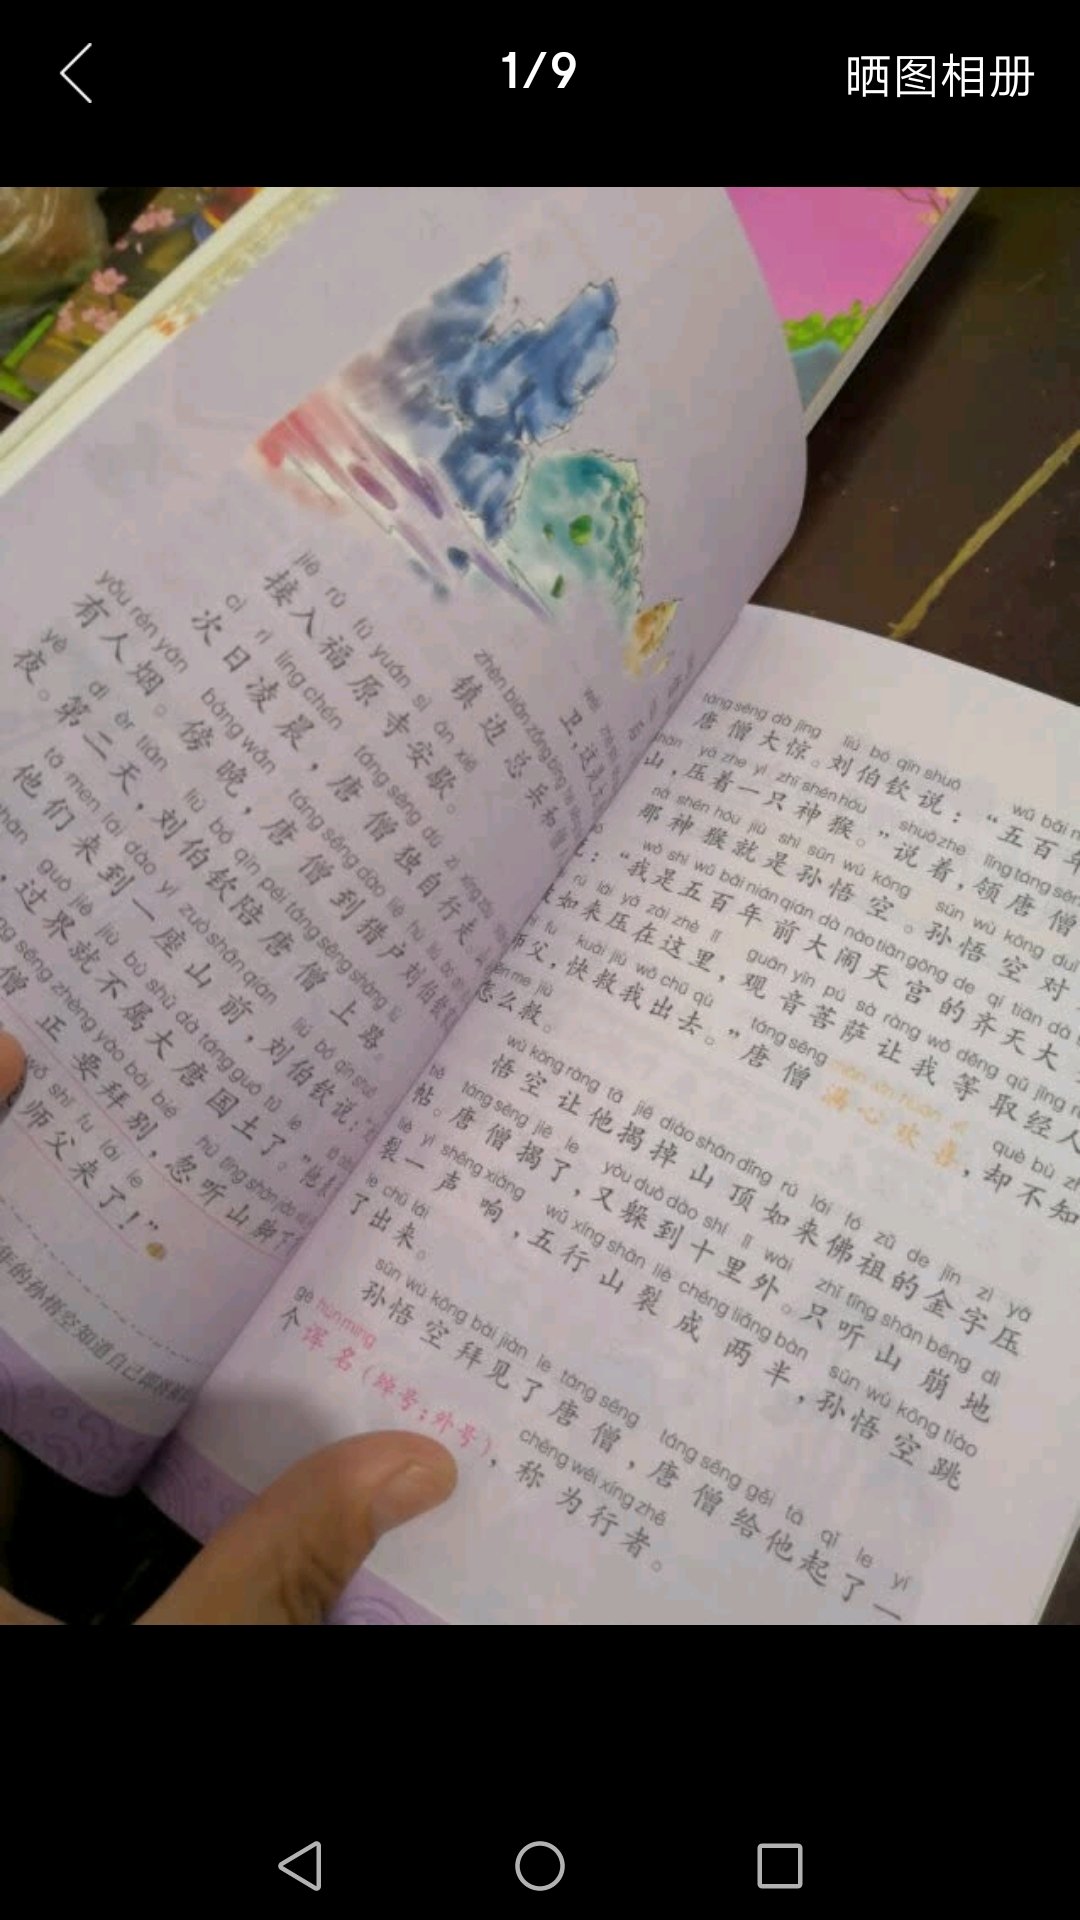 1/9
晒图相册
zhèn biān zǒng bīng
镇边总兵和
jiē rù fú yuán sì ān xiē
接入福原寺安歇。
cì rì líng chén táng sēng dú zì xíng
次日凌晨，唐僧独自行
yǒu rén yān bàng wǎn táng sēng dào liè hù liú bó qīn
有人烟。傍晚，唐僧到猎户刘伯钦
yè dì èr tiān liú bó qīn péi táng sēng shàng lù
夜。第二天，刘伯钦陪唐僧上路。
tā men lái dào yí zuò shān qián liú bó qīn shuō
他们来到一座山前，刘伯钦说：
guò jiè jiù bù shǔ dà táng guó tǔ le
，过界就不属大唐国土了。”
sēng zhèng yào bài bié hū tīng shān jiǎo
僧正要拜别，忽听山脚下
wǒ shī fu lái le
师父来了！”
年的孙悟空知道自己
táng sēng dà jīng liú bó qīn shuō wǔ bǎi
唐僧大惊。刘伯钦说：“五百年
yā zhe yì zhī shén hóu shuō zhe lǐng táng sēng
山，压着一只神猴。”说着，领唐僧
nà shén hóu jiù shì sūn wù kōng sūn wù kōng duì
那神猴就是孙悟空。孙悟空对
wǒ shì wǔ bǎi nián qián dà nào tiān gōng de qí tiān dà
：“我是五百年前大闹天宫的齐天大
rú lái yā zài zhè lǐ guān yīn pú sà ràng wǒ děng qǔ jīng
如来压在这里，观音菩萨让我等取经人
fu kuài jiù wǒ chū qù táng sēng mǎn xīn huān xǐ què bù
师父，快救我出去。”唐僧满心欢喜，却不知
me jiù
怎么救。
wù kōng ràng tā jiē diào shān dǐng rú lái fó zǔ de jīn zì yā
悟空让他揭掉山顶如来佛祖的金字压
tiě táng sēng jiē le yòu duǒ dào shí lǐ wài zhǐ tīng shān bēng dì
帖。唐僧揭了，又躲到十里外。只听山崩地
liè yì shēng xiǎng wǔ xíng shān liè chéng liǎng bàn sūn wù kōng tiào
裂一声响，五行山裂成两半，孙悟空跳
le chū lái
了出来。
sūn wù kōng bài jiàn le táng sēng táng sēng gěi tā qǐ le yí
孙悟空拜见了唐僧，唐僧给他起了一
gè hùn míng chēng wéi xíng zhě
个诨名（绰号；外号），称为行者。